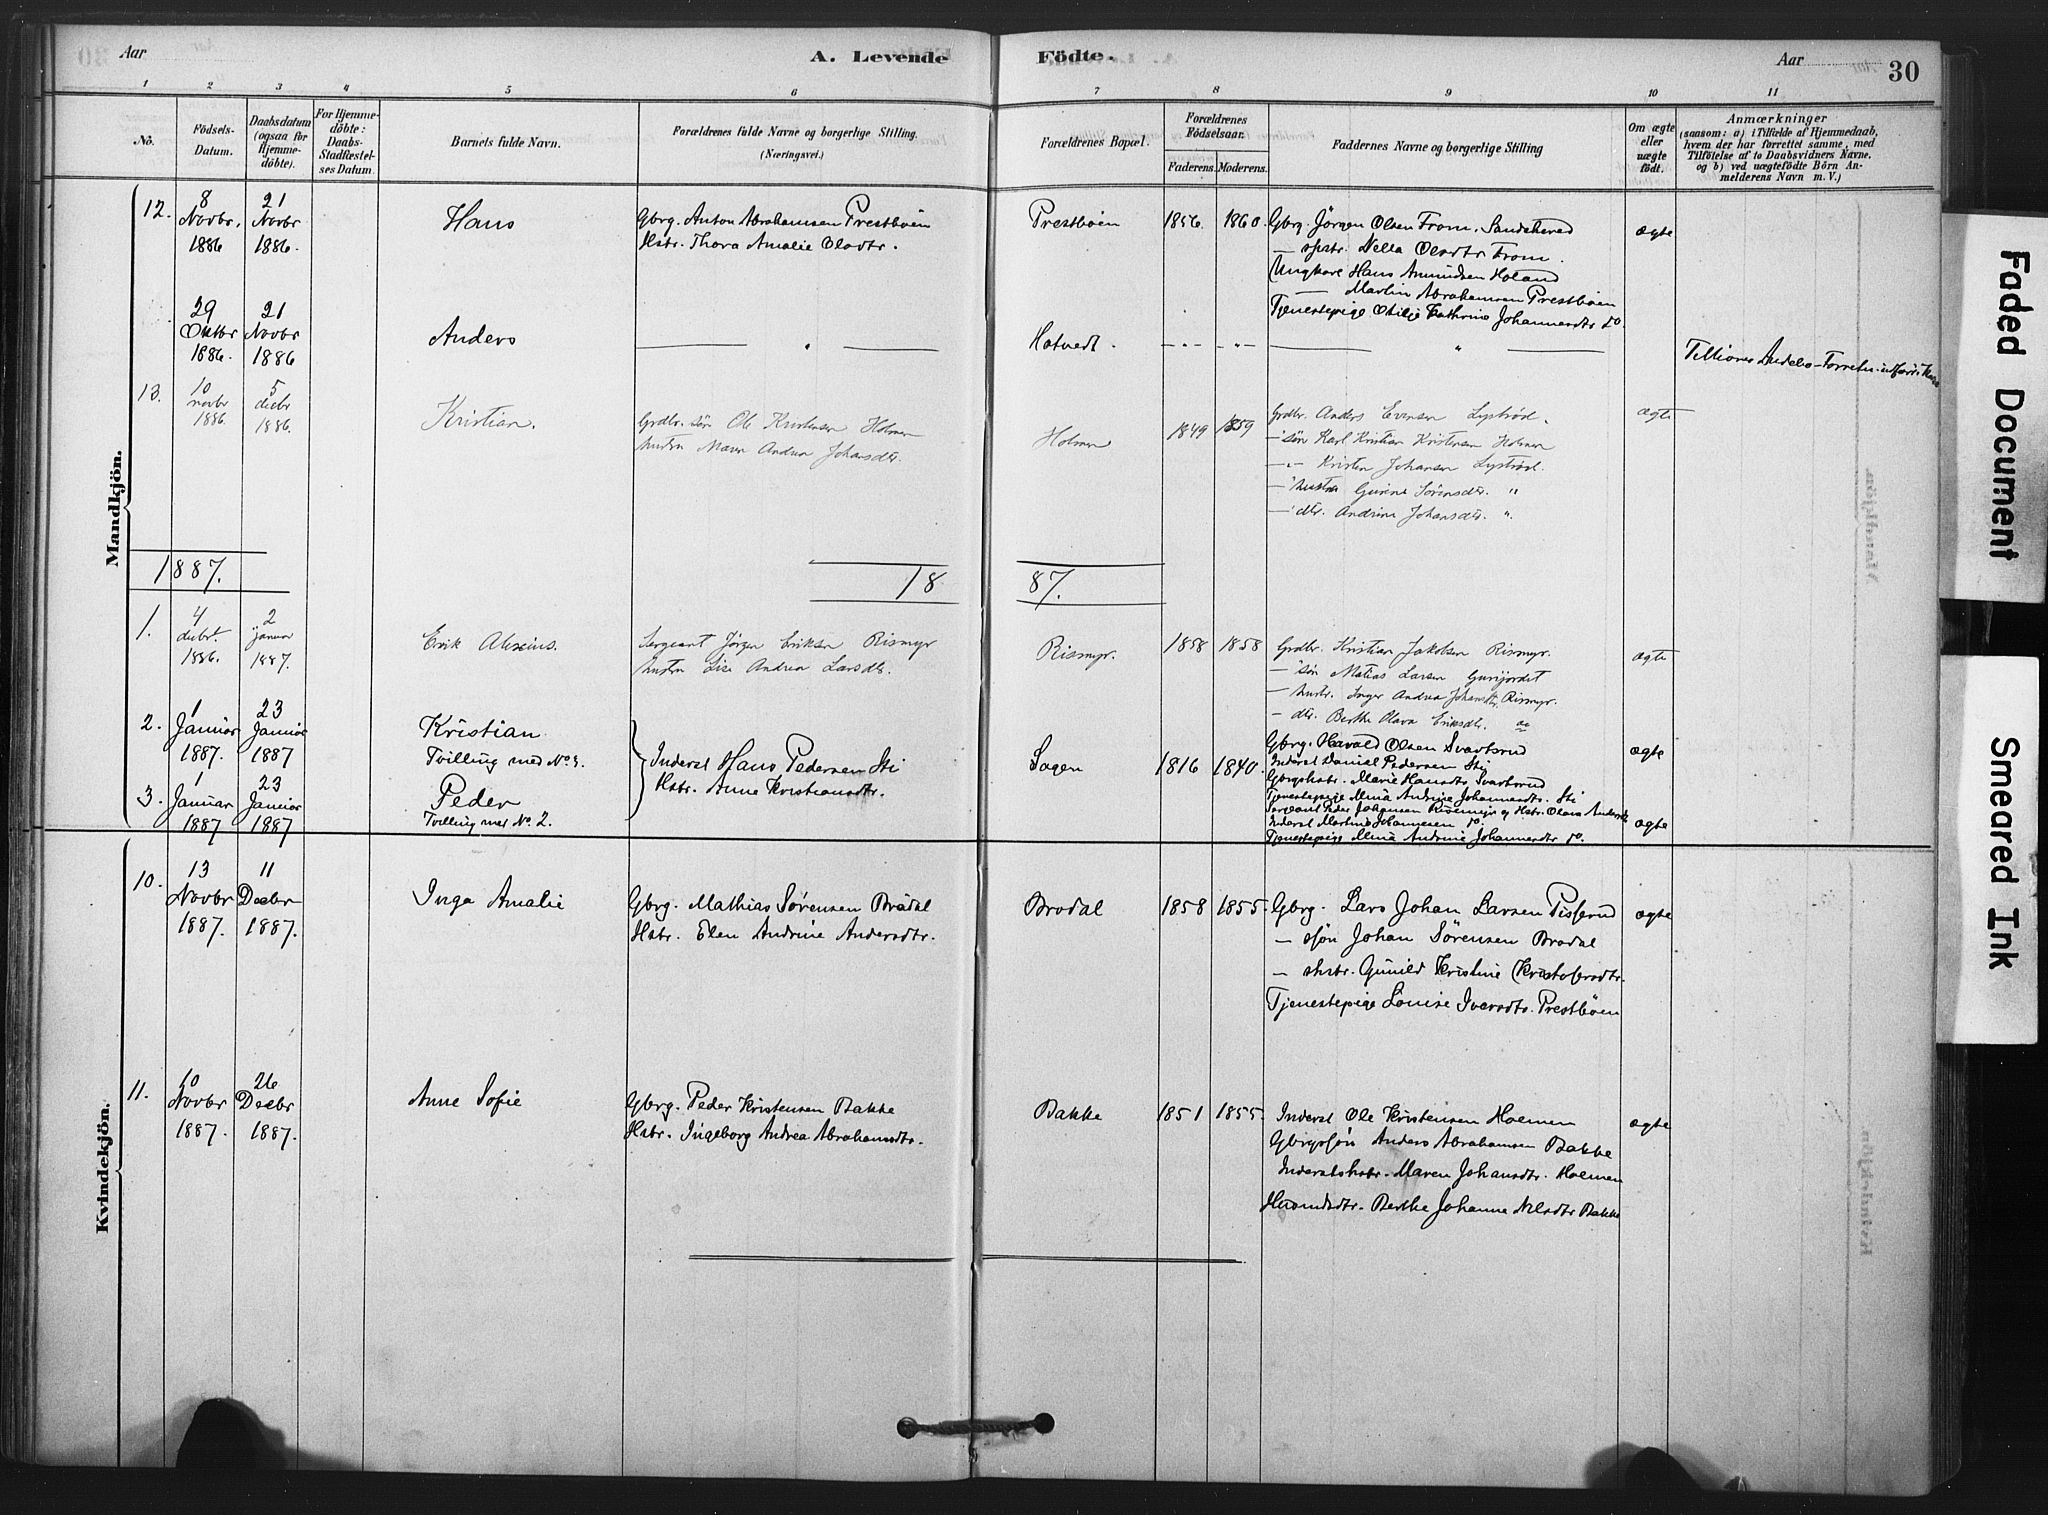 Aar
A. Levende Födte.
Aar
30
1 2 3 4 5 6 7 8 9 10 11
No.
Födsels-Datum.
Daabsdatum (ogsaa for Hjemmedöbte).
For Hjemmedöbte: Daabs-Stadfæstelses Datum.
Barnets fulde Navn.
Forældrenes fulde Navne og borgerlige Stilling.
(Næringsvei.)
Forældrenes Bopæl.
Forældrenes Födselsaar.
Faderens. Moderens.
Faddernes Navne og borgerlige Stilling
Om ægte eller uægte födt.
Anmærkninger
(saasom: a) i Tilfælde af Hjemmedaab,
hvem der har forrettet samme, med
Tilföielse af to Daabsvidners Navne,
og b) ved uægtefödte Börn Anmelderens Navn m. V.)
Mandkjön.
12. 8 Novbr. 1886 21 Novbr 1886.
Hans
Gbrg. Anton Abrahamsen Prestbøen
Hstr. Thora Amalie Olsdtr.
Prestbøen 1856 1860.
Gbrg. Jörgen Olsen From, Sandeherred
— hstr. Nella Olsdtr From.
Ungkarl Hans Amundsen Hotand
— Martin Abrahamsen Prestbøen
Tjenestepige Otilje Kathrine Johannesdtr do.
ægte
29 Oktbr 1886. 21 Novbr 1886
Anders
— " —
Hotvedt. - - - - " -
— " —
13. 10 novbr 1886. 5 decbr 1886.
Kristian.
Grdbr. søn Ole Kristensen Holmen
hustru Maren Andrea Johansdtr.
Holmen 1849 1859
Grdbr. Anders Evensen Lystrød.
— søn Karl Kristian Kristensen Holmen
— " — Kristen Johansen Lystrød.
— hustru Gurine Sørensdtr. "
— dtr. Andrine Johansdtr. "
ægte
1887. 18 87.
1. 4 decbr. 1886. 2 januar 1887.
Erik Alexius.
Sergeant Jørgen Eriksen Rismyr
hustru Lise Andrea Larsdtr.
Rismyr. 1858 1858
Grdbr. Kristian Jakobsen Rismyr.
— søn Matias Larsen Gurijordet
— hustr. Inger Andrea Johansdtr. Rismyr.
— dtr. Berthe Olava Eriksdtr. do
ægte
2. 1 Januar 1887. 23 Januar 1887
Kristian
Tvilling med No 3.
3. 1 Januar 1887 23 Januar 1887
Peder
Tvilling med No. 2.
Inderst Hans Pedersen Sti
Hstr. Anne Kristiansdtr.
Sagen 1816 1840.
Gbrg. Harald Olsen Svartsrud
Inderst Daniel Pedersen Sti
Gbrgshstr. Marie Hansdtr Svartsrud
Tjenestepige Mina Andrine Johannesdtr. Sti
Sergeant Peder Johansen Risemyr og Hstr. Olava Andersdtr
Inderst Martine Johannesen do.
Tjenestepige Mina Andrine Johannesdtr do.
ægte
ægte
Kvindekjön.
10. 13 Novbr 1887. 11 Decbr 1887.
Inga Amalie
Gbrg. Mathias Sørensen Brådal
Hstr. Elen Andrine Andersdtr.
Brodal 1858 1855.
Gbrg. Lars Johan Larsen Tisserud
— søn Johan Sørensen Brodal
— hstr. Gunild Kristine Kristofersdtr.
Tjenestepige Louise Iversdtr. Prestbøen
ægte
11. 10 Novbr 1887. 26 Decbr 1887.
Anne Sofie
Gbrg. Peder Kristensen Bakke
Hstr. Ingeborg Andrea Abrahamsdtr.
Bakke 1851 1855.
Inderst Ole Kristensen Holmen
Gbrgssøn Anders Abrahamsen Bakke
Inderstshstr. Maren Johansdtr. Holmen
Husmdsdtr. Berthe Johanne Nilsdtr Bakke
ægte
Faded Document
Smeared Ink